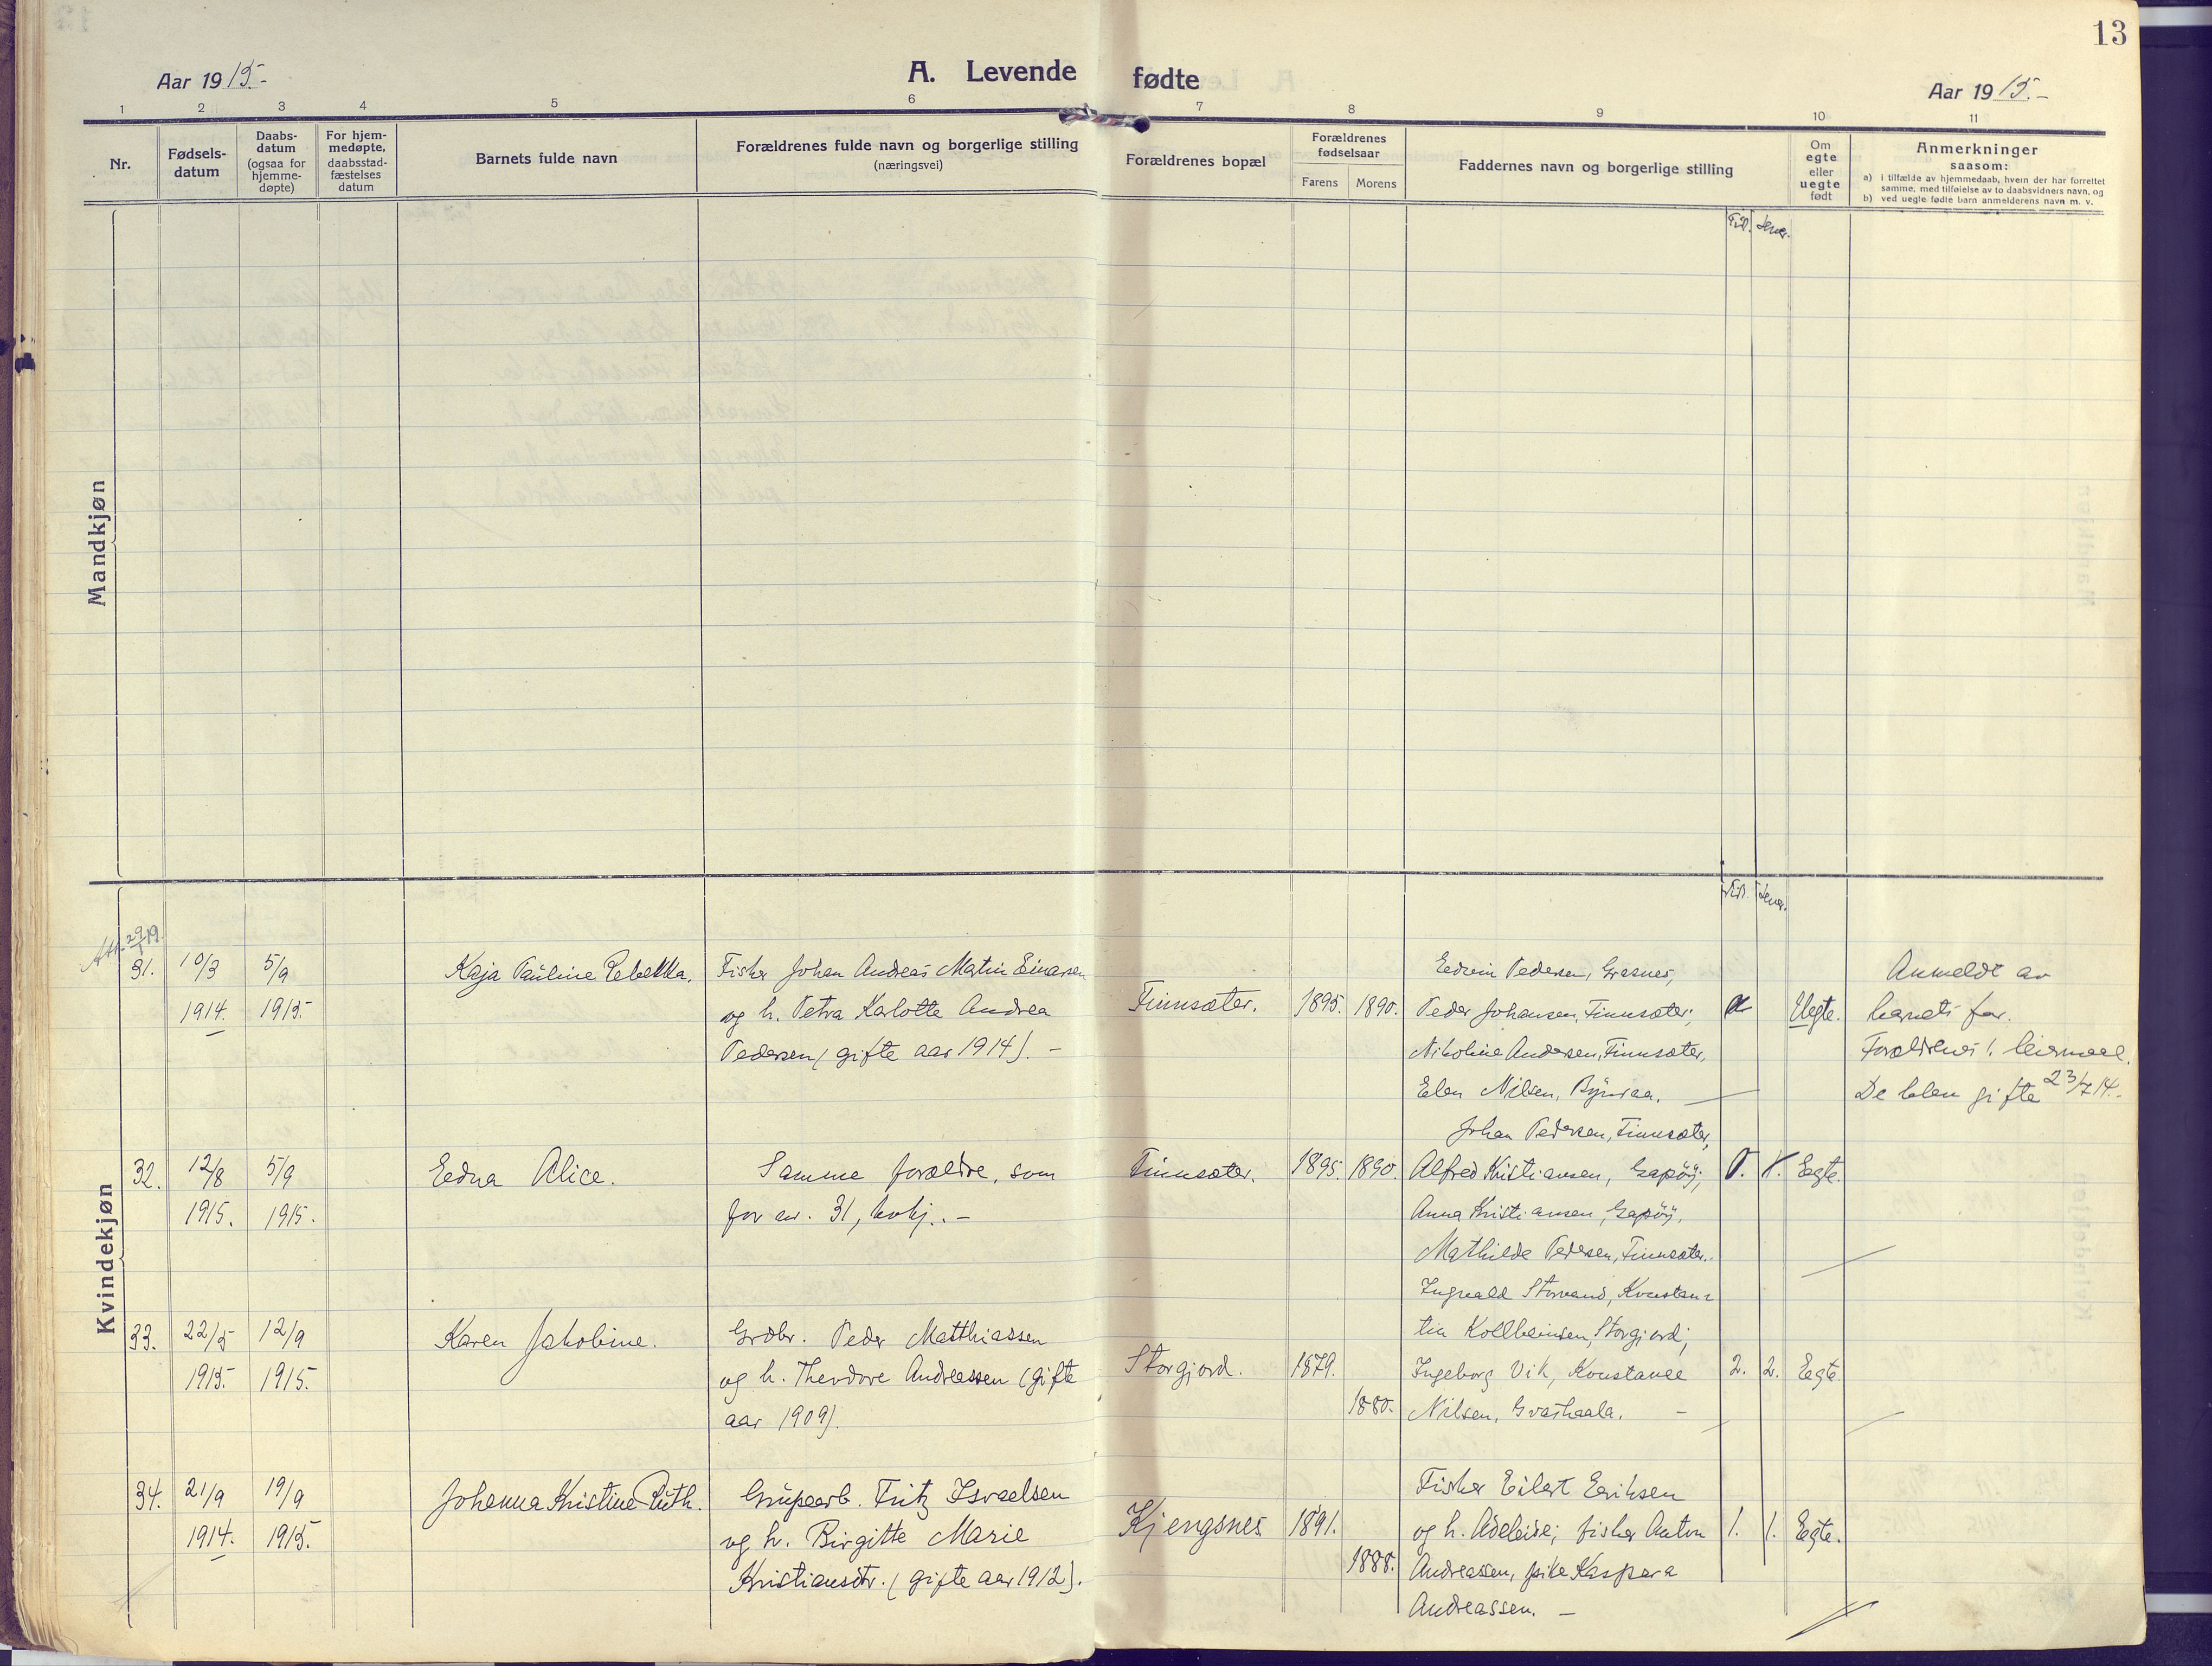 13
Aar 1915.-
A. Levende fødte
Aar 1915.-
1 2 3 4 5 6 7 8 9 10 11
Nr.
Fødsels-
datum
Daabs-
datum
(ogsaa for
hjemme-
døpte)
For hjem-
medøpte,
daabsstad-
fæstelses
datum
Barnets fulde navn
Forældrenes fulde navn og borgerlige stilling
(næringsvei)
Forældrenes bopæl
Forældrenes
fødselsaar
Farens Morens
Faddernes navn og borgerlige stilling
Om
egte
eller
uegte
født
Anmerkninger
saasom:
a) i tilfælde av hjemmedaab, hvem der har forrettet
samme, med tilføielse av to daabsvidners navn, og
b) ved uegte fødte barn anmelderens navn m. v.
Mandkjøn
Kvindekjøn
31.
10/3
1914.
5/9
1915.
Kaja Pauline Rebekka.
Fisker Johan Andreas Martin Einarsen
og h. Petra Karlotte Andrea
Pedersen (gifte aar 1914). -
Finnsæter.
1895. 1890.
Edvin Pedersen, Grasnes,
Peder Johansen, Finnsæter;
Nikoline Andersen, Finnsæter,
Elen Nilsen,
Uegte.
Anmeldt av
barnets far.
Forældrenes 1. leiermaal.
De blev gifte 23/7 14.-
32.
12/8
1915.
5/9
1915.
Edna Alice.
Samme forældre, som
for nr. 31, kvkj.. -
Finnsæter.
1895. 1890.
Johan Pedersen, Finnsæter,
Alfred Kristiansen, Gapøy;
Anna Kristiansen, Gapøy,
Mathilde Pedersen, Finnsæter.
Egte.
33.
22/5
1915.
12/9
1915.
Karen Jakobine.
Grdbr. Peder Matthiassen
og h. Theodore Andreassen (gifte
aar 1909).
Storgjord.
1879.
1880.
Ingvald Storvand, Konstan=
tin Kollbeinsen, Storgjord;
Ingeborg Vik, Konstanse
Nilsen, -
2. 2. Egte.
34.
21/9
1914.
19/9
1915.
Johanna Kristine Ruth.
Grupearb. Fritz Israelsen
og h. Birgitte Marie
Kristiansdtr. (gifte aar 1912).
Kjengsnes
1891.
1888.
Fisker Eilert Eriksen
og h. Adeleide; fisker Anton
Andreassen, pike Kaspara
Andreassen. -
1. 1. Egte.